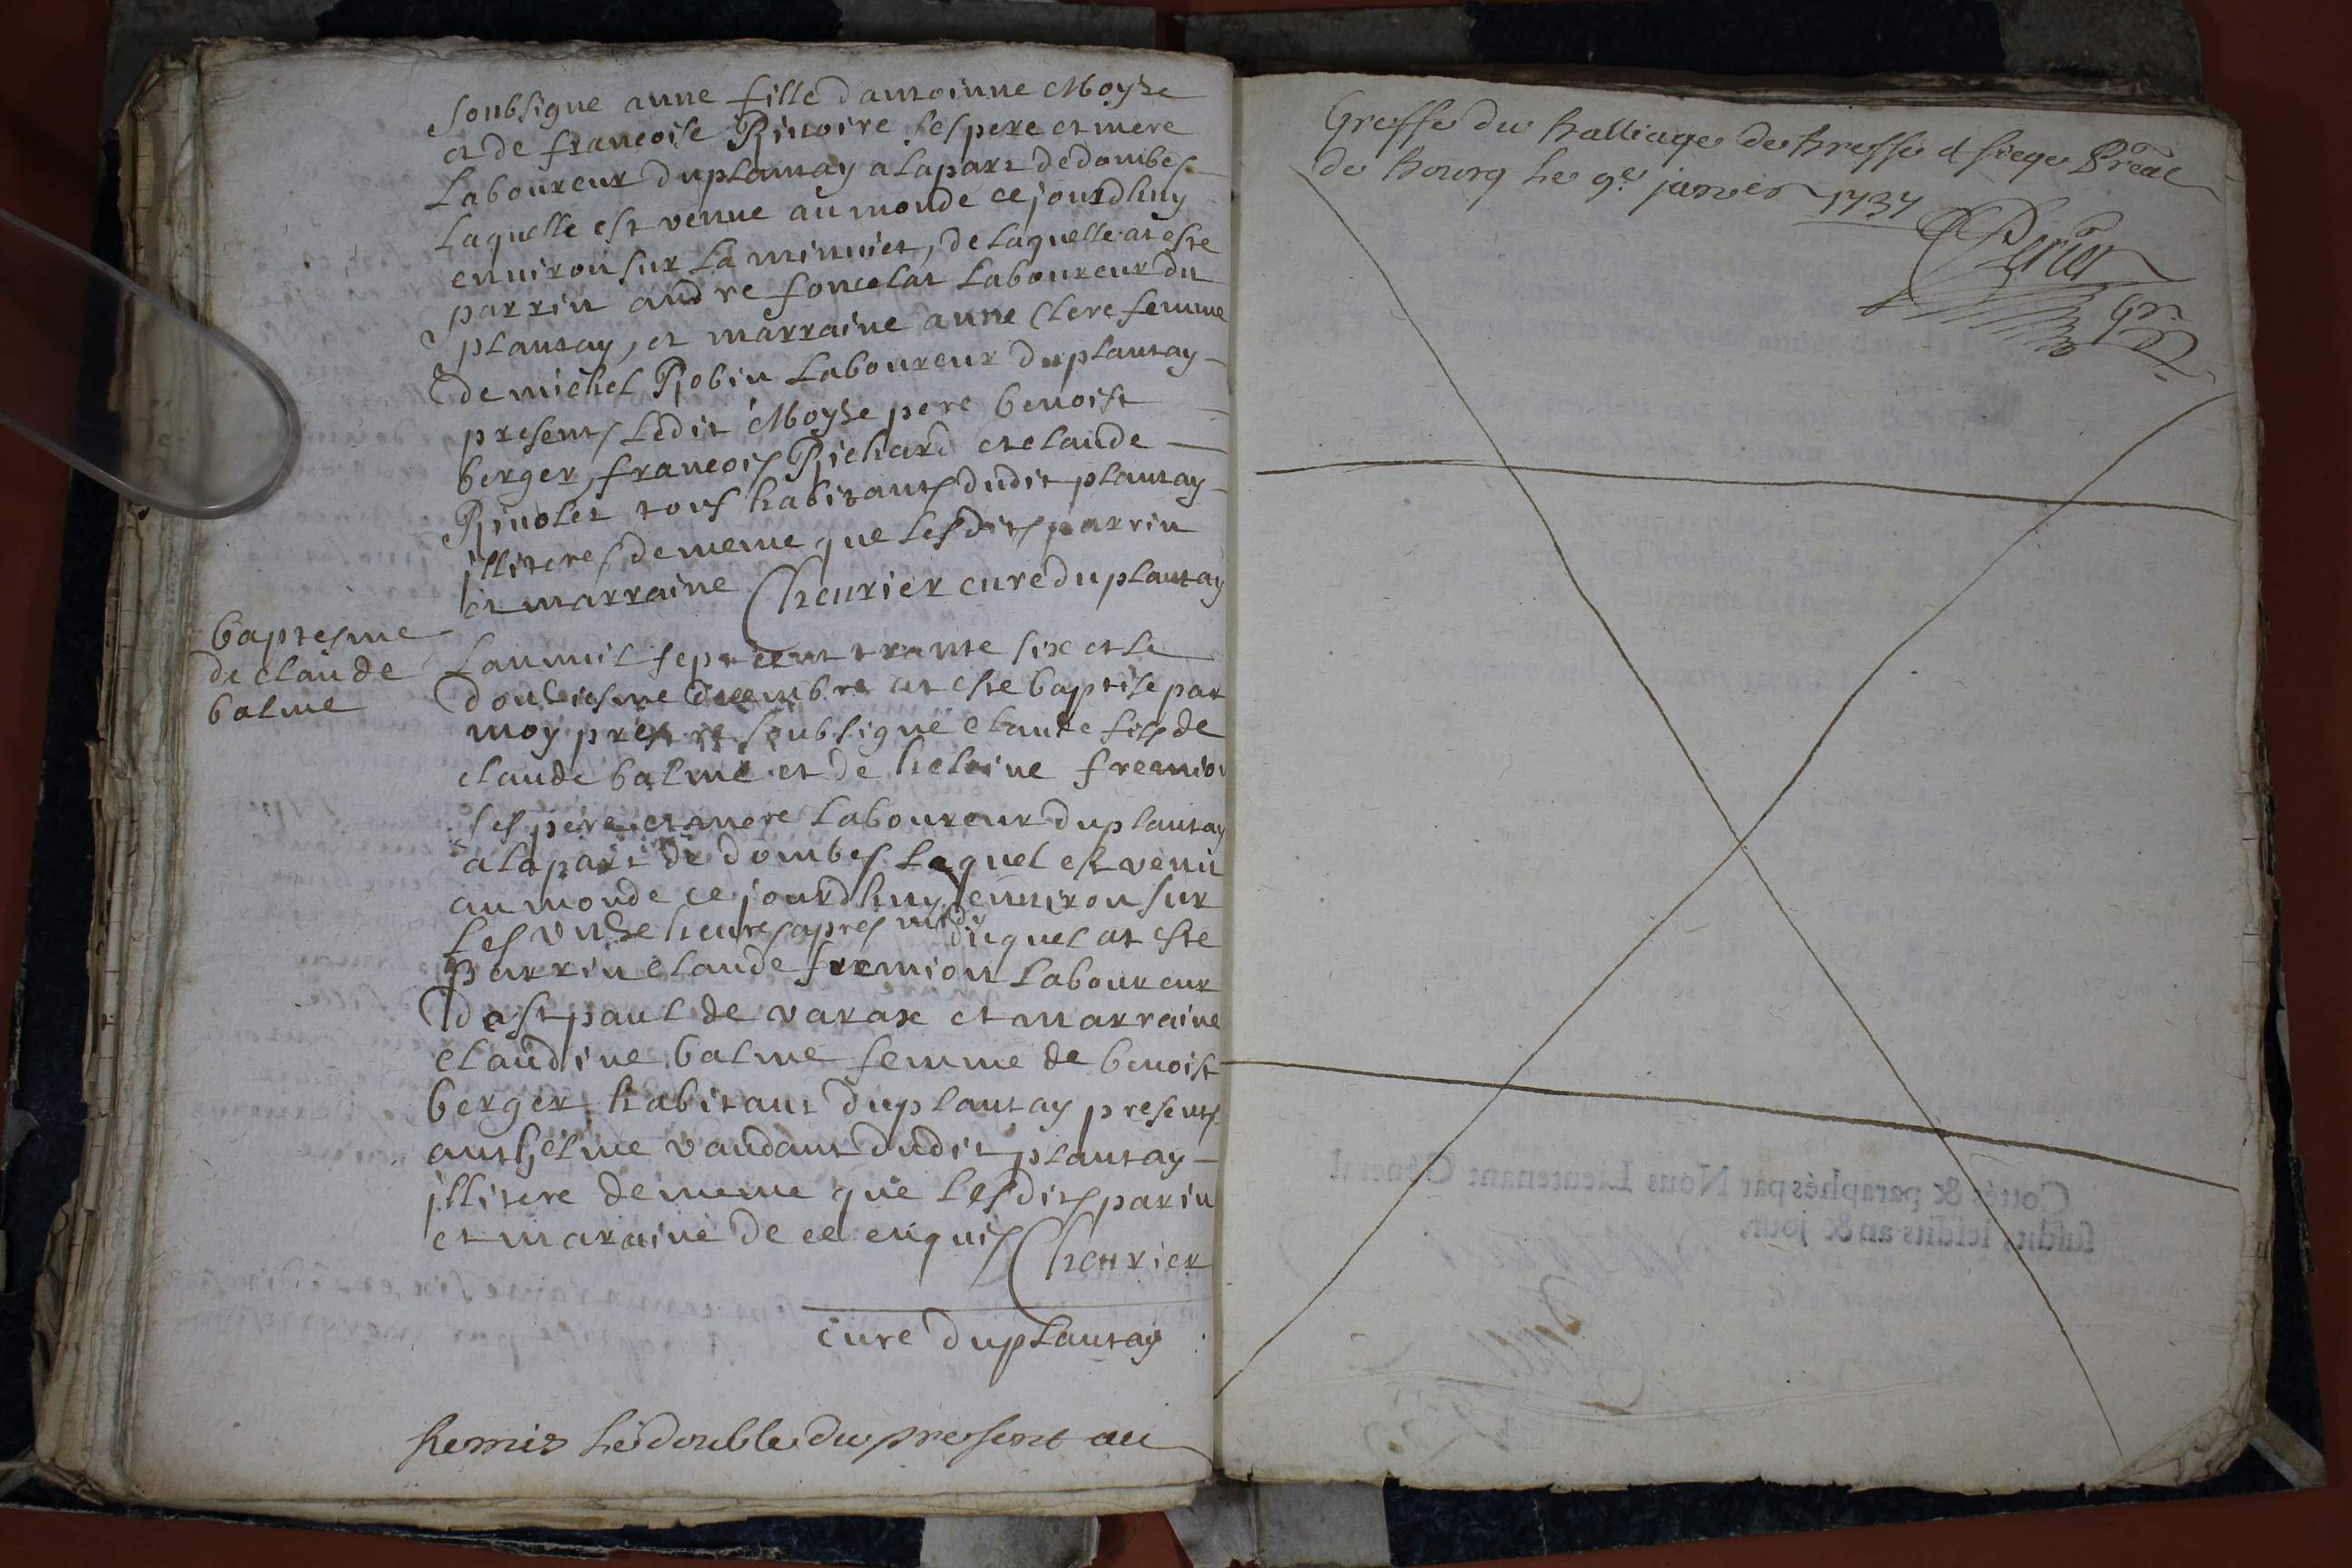 soubsigne anne fille dantoinne Moyze
et de francoise Rinoire ses pere et mere
Laboureur du plantay a la part de dombes
Laquelle est venue au monde ce jourdhuy
environ sur La minniet, de Laquelle at este
parrin andre foncelat Laboureur du
plantay, et marraine anne Clere femme
de michel Robin Laboureur du plantay
presents Ledit Moyze pere benoist
berger, francois Richard et claude
Rinolet tous habitants dudit plantay
illiteres de meme que Lesdits parrin
et marraine Cheurier cure du plantay
baptesme
de claude
balme
Lan mil sept cent trante six et Le
douziesme decembre at este baptise par
moy prestre soubsigne claude fils de
claude balme et de helaine fremion
ses pere et mere Laboureur du plantay
a la part de dombes Lequel est venu
au monde ce jourdhuy environ sur
Les unze heures apres midy duquel at este
parrin claude fremion Laboureur
de st paul de varax et marraine
claudine balme femme de benoist
berger habitant du plantay presents
anthelme vaudant dudit plantay
illitere de meme que Lesdits parin
et maraine de ce enquis Cheurier
cure du plantay
Remis Le double du present au
Greffe du balliage de bresse et siege Preal
de bourg Le 9e janvier 1737
Perier
Gr.
Cottés & paraphés par Nous Lieutenant Général
susdit, lesdits an & jour.